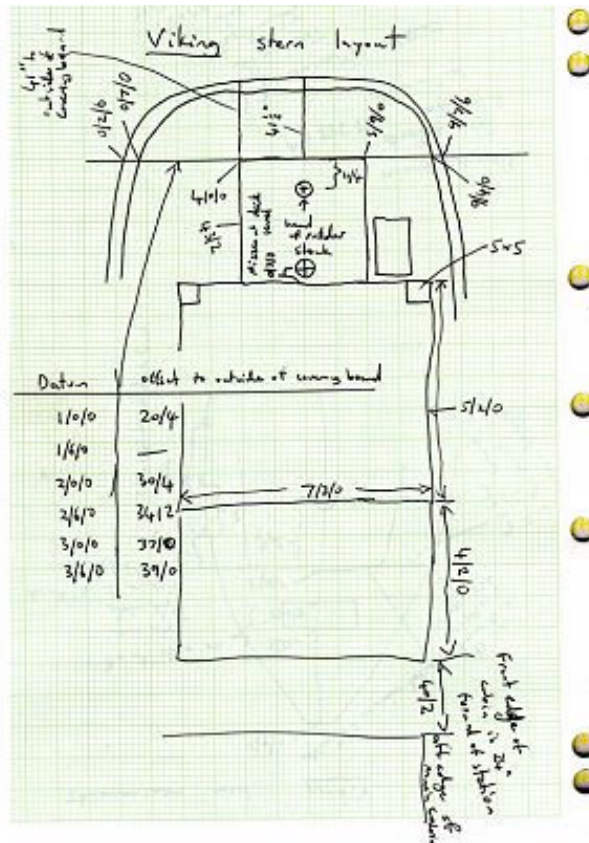 Viking stern layout
41" to
outside of
covering board
0/2/0
0/7/0
41½"
5/8/0
9/2/8
0/4/8
4/0/0
43/2
head
of rudder
stock
5x5
Datum offset to outside of covering board
1/0/0 20/4
1/6/0 —
2/0/0 30/4
2/6/0 34/2
3/0/0 37/0
3/6/0 39/0
5/2/0
7/3/0
4/2/0
40/2
Front edge of
cabin is 24"
forward of station
aft edge of
main cabin